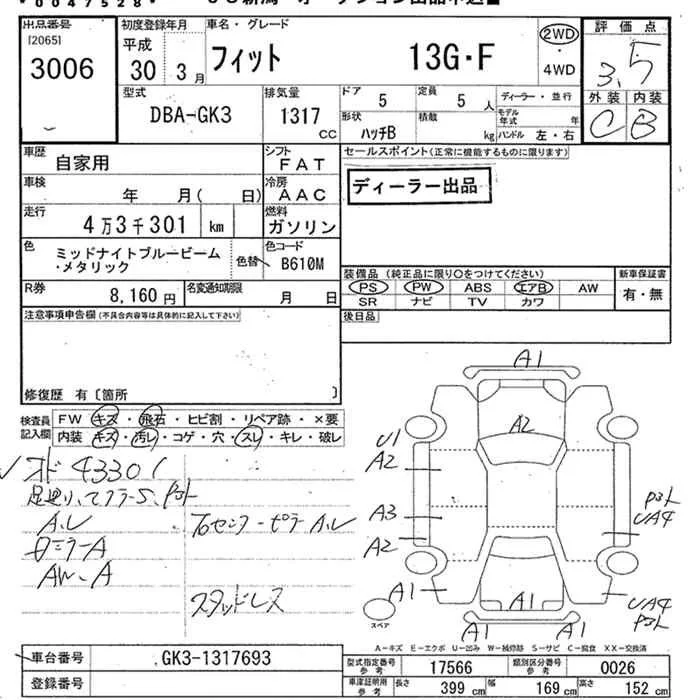 *0047528*
出品番号
[2065]
3006
初度登録年月
平成
30 3月
車名・グレード
フィット 13G・F
2WD
・
4WD
評価点
3.5
外装 内装
C B
型式
DBA-GK3
排気量
1317
CC
ドア
5
定員
5 人
形状
ハッチB
積載
kg
ディーラー・並行
モデル年式 年
ハンドル 左・右
車歴
自家用
シフト
FAT
車検
年 月( 日)
冷房
AAC
走行
4万3千301 km
燃料
ガソリン
色
ミッドナイトブルービーム
・メタリック
色替
色コード
B610M
R券
8,160円
名変通知期限
月 日
セールスポイント(正常に機能するものに限ります)
ディーラー出品
装備品(純正品に限り○をつけてください)
PS PW ABS エアB AW
SR ナビ TV カワ
新車保証書
有・無
後日品
注意事項申告欄(不具合内容等は具体的に記入して下さい)
修復歴 有〔箇所 〕
検査員
記入欄
FW キズ・飛石・ヒビ割・リペア跡・×要
内装 キズ・汚レ・コゲ・穴・スレ・キレ・破レ
43301
A.L
ミラーA
AW.A
センターピラー A.L
スタッドレス
A1
A2
U1
A2
A3
A2
A1
A1
A1
UA4
UA4
スペア
A-キズ E-エクボ U-凹み W-補修跡 S-サビ C-腐食 XX-交換済
車台番号
GK3-1317693
登録番号
型式指定番号
参考
17566
類別区分番号
参考
0026
車庫証明用
参考
長さ 399 cm 幅 169 cm 高さ 152 cm